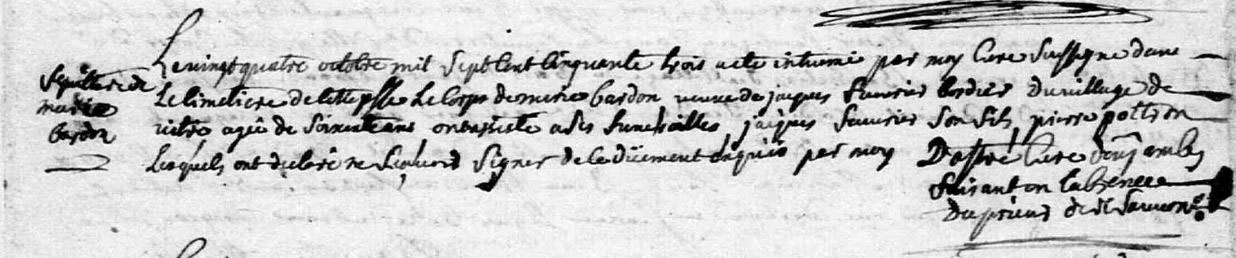 Sepulture de
marie
bardon
Le vingt quatre octobre mil sept cent cinquante trois a ete inhumé par moy Curé sussigné dans
Le Cimetiere de cette psse Le Corps de marie bardon veuve de jaques bordier du village de
vitré agée de soixante ans ont assisté a ses funerailles jaques son fils, pierre poitron
Lesquels ont declaré ne scavoir signer de ce düement enquis par moy Curé
faisant en Labsence
du prieur de st